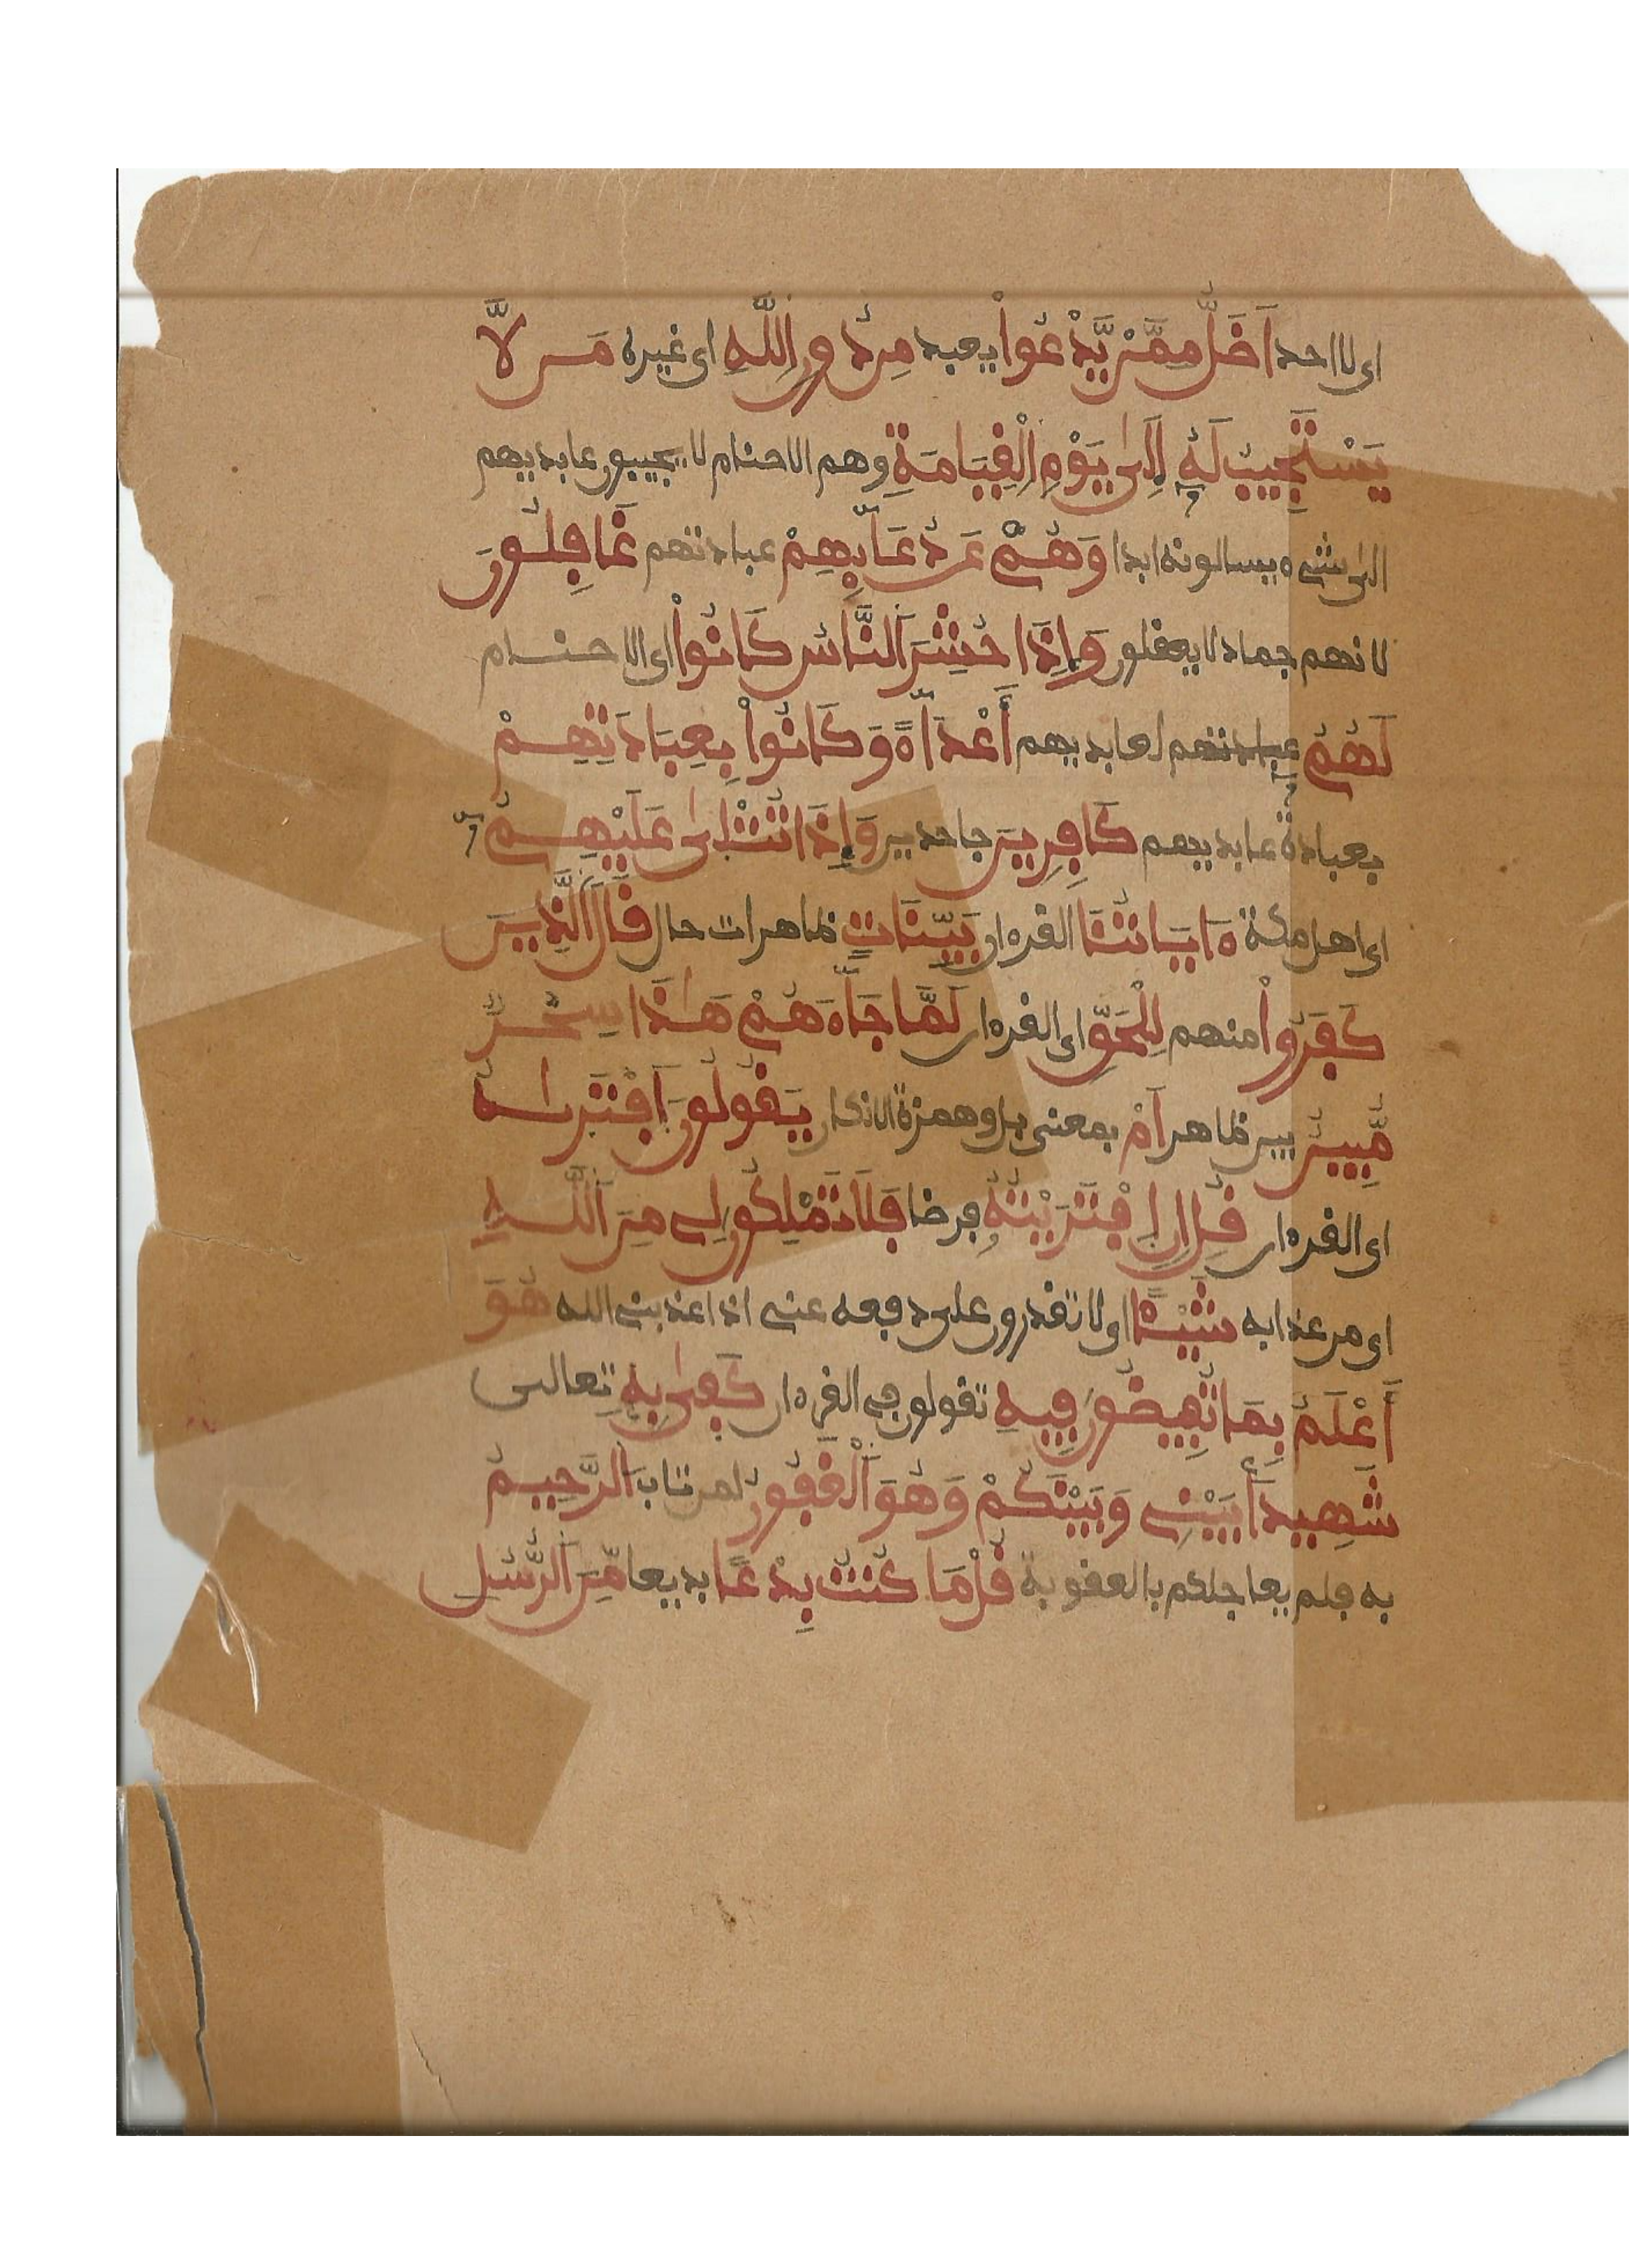 اى لا احد اَضَلُّ مِمَّنْ يَّدْعُواْ يعبد مِن دُونِ اِ۬للَّهِ اى غيره مَن لاَّ
يَسْتَجِيبُ لَهُۥٓ إِلَىٰ يَوْمِ اِ۬لْقِيَامَةِ وهم الاصنام لا يجيبون عابديهم
الى شىء يسالونه ابدا وَهُمْ عَن دُعَآئِهِمْ عبادتهم غَافِلُونَ
لانهم جماد لا يعقلون وَإِذَا حُشِرَ اَ۬لنَّاسُ كَانُواْ اى الاصنام
لَهُمُۥٓ عبادتهم لعابديهم أَعْدَآءً وَكَانُواْ بِعِبَادَتِهِمْ
بعبادة عابديهم كَافِرِينَ جاحدين وَإِذَا تُتْلَىٰ عَلَيْهِمُۥٓ
اى اهل مكة ءَايَاتُنَا القرءان بَيِّنَاتٍ ظاهرات حال قَالَ اَ۬لَّذِينَ
كَفَرُواْ منهم لِلْحَقِّ اى القرءان لَمَّا جَآءَهُمْ هَٰذَا سِحْرٌ
مُّبِينٌ بين ظاهر اَمْ بمعنى بل وهمزة الانكار يَقُولُونَ اَ۪فْتَرَىٰهُ
اى القرءان قُلِ اِنِ اِ۪فْتَرَيْتُهُۥ فرضا فَلَا تَمْلِكُونَ لِے مِنَ اَ۬للَّهِ
اى من عذابه شَيْـًٔا اى لا تقدرون على دفعه عنى اذا عذبنى الله هُوَ
أَعْلَمُ بِمَا تُفِيضُونَ فِيهِ تقولون فى القرءان كَفَىٰ بِهِۦ تعالى
شَهِيداَۢ بَيْنِے وَبَيْنَكُمْ وَهُوَ اَ۬لْغَفُورُ لمن تاب اَ۬لرَّحِيمُ
به فلم يعاجلكم بالعقوبة قُلْ مَا كُنتُ بِدْعًا بديعا مِّنَ اَ۬لرُّسُلِ